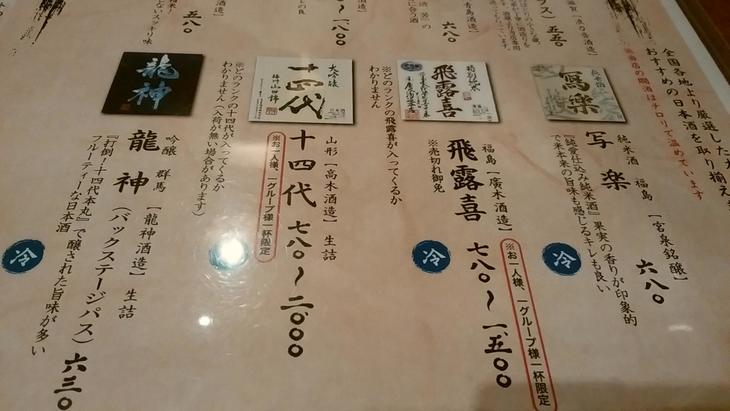 全国各地より厳選した
おすすめの日本酒を取り揃え
当店の燗酒はチロリで温めています
写楽
純米酒 福島 【宮泉銘醸】
写楽 六八〇
『純愛仕込み純米酒』果実の香りが印象的
で米本来の旨味も感じるキレも良い
冷
特別純米
飛露喜
福島【廣木酒造】
飛露喜 七八〇～一、五〇〇
※売切れ御免
※お一人様、一グループ様一杯限定
※どのランクの飛露喜が入ってくるか
わかりません
冷
大吟醸
十四代
播州山田錦
山形【高木酒造】生詰
十四代 七八〇～二、〇〇〇
※お一人様、一グループ様一杯限定
※どのランクの十四代が入ってくるか
わかりません（入荷が無い場合があります）
冷
龍神
吟醸 群馬 【龍神酒造】 生詰
龍神（バックステージパス） 六三〇
『打倒！十四代本丸』で醸された旨味が多い
フルーティーな日本酒
冷
五五〇
六八〇
一八〇
五八〇